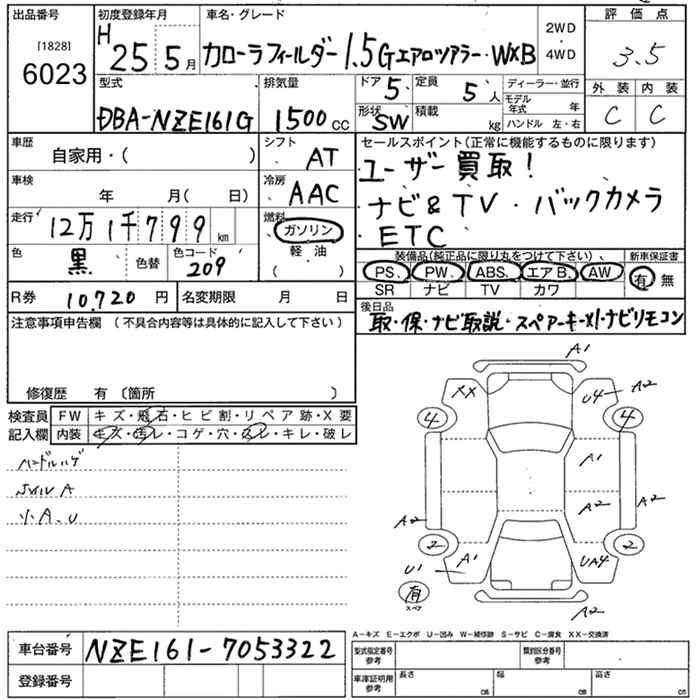 出品番号
[1828]
6023
初度登録年月
H 25 5月
車名・グレード
カローラフィールダー 1.5GエアロツアラーWXB
2WD
・
4WD
評価点
3.5
外装 内装
C C
型式
DBA-NZE161G
排気量
1500 cc
ドア 5
定員 5人
形状 SW
積載 kg
ディーラー・並行
モデル年式 年
ハンドル 左・右
車歴
自家用・( )
シフト AT
車検
年 月( 日)
冷房 AAC
走行
12万1千799km
燃料
ガソリン
軽油
( )
色 黒
色替
色コード 209
セールスポイント(正常に機能するものに限ります)
ユーザー買取!
ナビ&TV・バックカメラ
・ETC
装備品(純正品に限り丸をつけて下さい)、
新車保証書
PS、 PW、 ABS、 エアB、 AW
SR ナビ TV カワ
有・無
R券 10,720 円
名変期限 月 日
後日品
取・保・ナビ取説・スペアーキーx1・ナビリモコン
注意事項申告欄(不具合内容等は具体的に記入して下さい)
修復歴 有〔箇所 〕
検査員記入欄
FW キズ・飛石・ヒビ割・リペア跡・X要
内装 キズ・汚レ・コゲ・穴・スレ・キレ・破レ
ハンドルハゲ
小A、U
A1
XX
U4
A2
4
4
A1
A2
A2
A2
2
2
A1
U1
UA4
有
スペア
A2
A-キズ E-エクボ U-凹み W-補修跡 S-サビ C-腐食 XX-交換済
車台番号 NZE161-7053322
登録番号
型式指定番号 参考
類別区分番号 参考
車庫証明用 参考
長さ cm
幅 cm
高さ cm